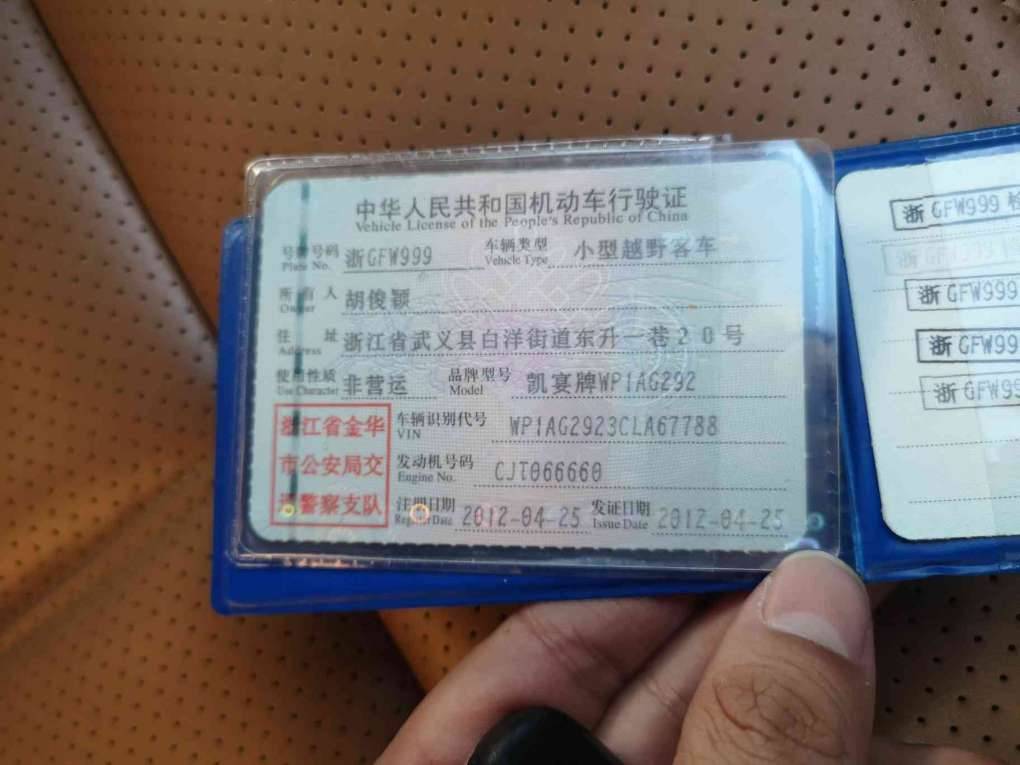 中华人民共和国机动车行驶证
Vehicle License of the People's Republic of China
号牌号码 浙GFW999 车辆类型 小型越野客车
Plate No. Vehicle Type
所有人 胡俊颖
Owner
住址 浙江省武义县白洋街道东升一巷20号
Address
使用性质 非营运 品牌型号 凯宴牌WP1AG292
Use Character Model
浙江省金华
市公安局交
通警察支队
车辆识别代号 WP1AG2923CLA67788
VIN
发动机号码 CJT066660
Engine No.
注册日期 2012-04-25 发证日期 2012-04-25
Register Date Issue Date
浙GFW999 检
浙GFW999
浙GFW999
浙GFW99
浙GFW99